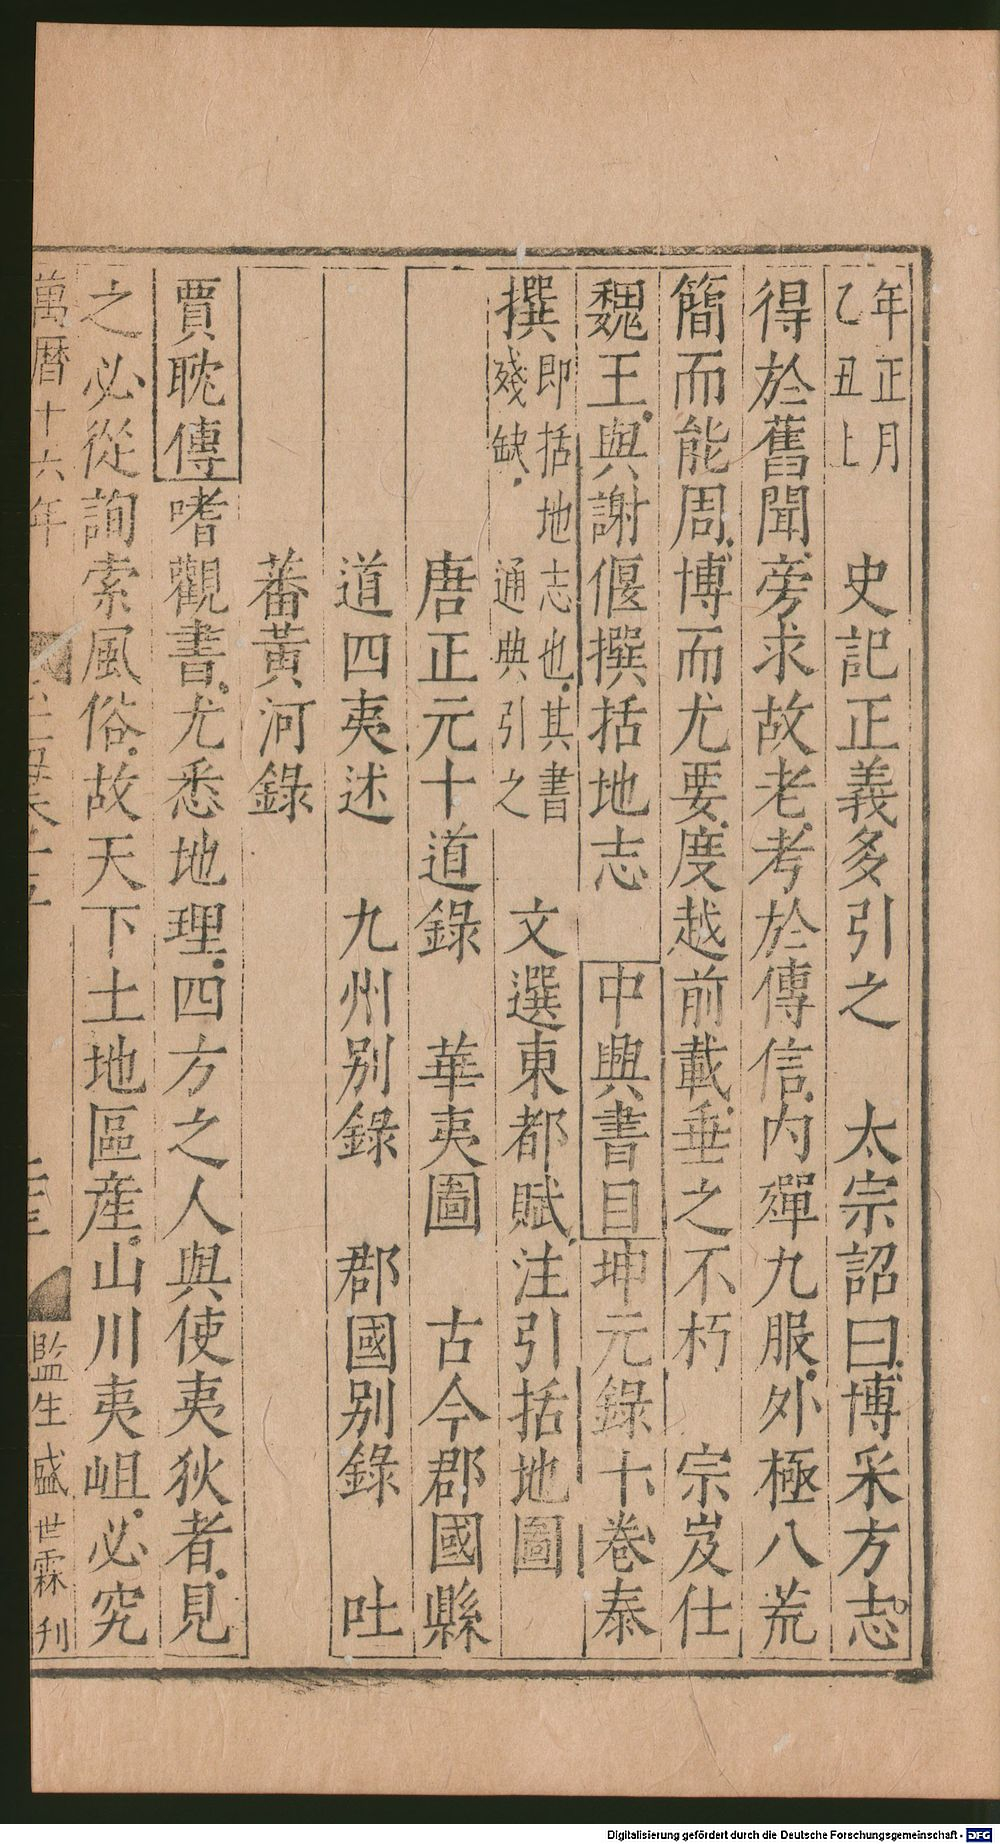 年正月乙丑上　史記正義多引之　太宗詔曰博采方志
得於舊聞旁求故老考於傳信内殫九服外極八荒
簡而能周博而尤要度越前載垂之不朽　宗岌仕
魏王與謝偃撰括地志　中興書目坤元錄十卷泰
撰即括地志也其書殘缺通典引之　文選東都賦注引括地圖
唐正元十道錄　華夷圖　古今郡國縣
道四夷述　九州别錄　郡國别錄　吐
蕃黃河錄
賈耽傳嗜觀書尤悉地理四方之人與使夷狄者見
之必從詢索風俗故天下土地區産山川夷岨必究
萬曆十六年　監生盛世霖刊
Digitalisierung gefördert durch die Deutsche Forschungsgemeinschaft - DFG